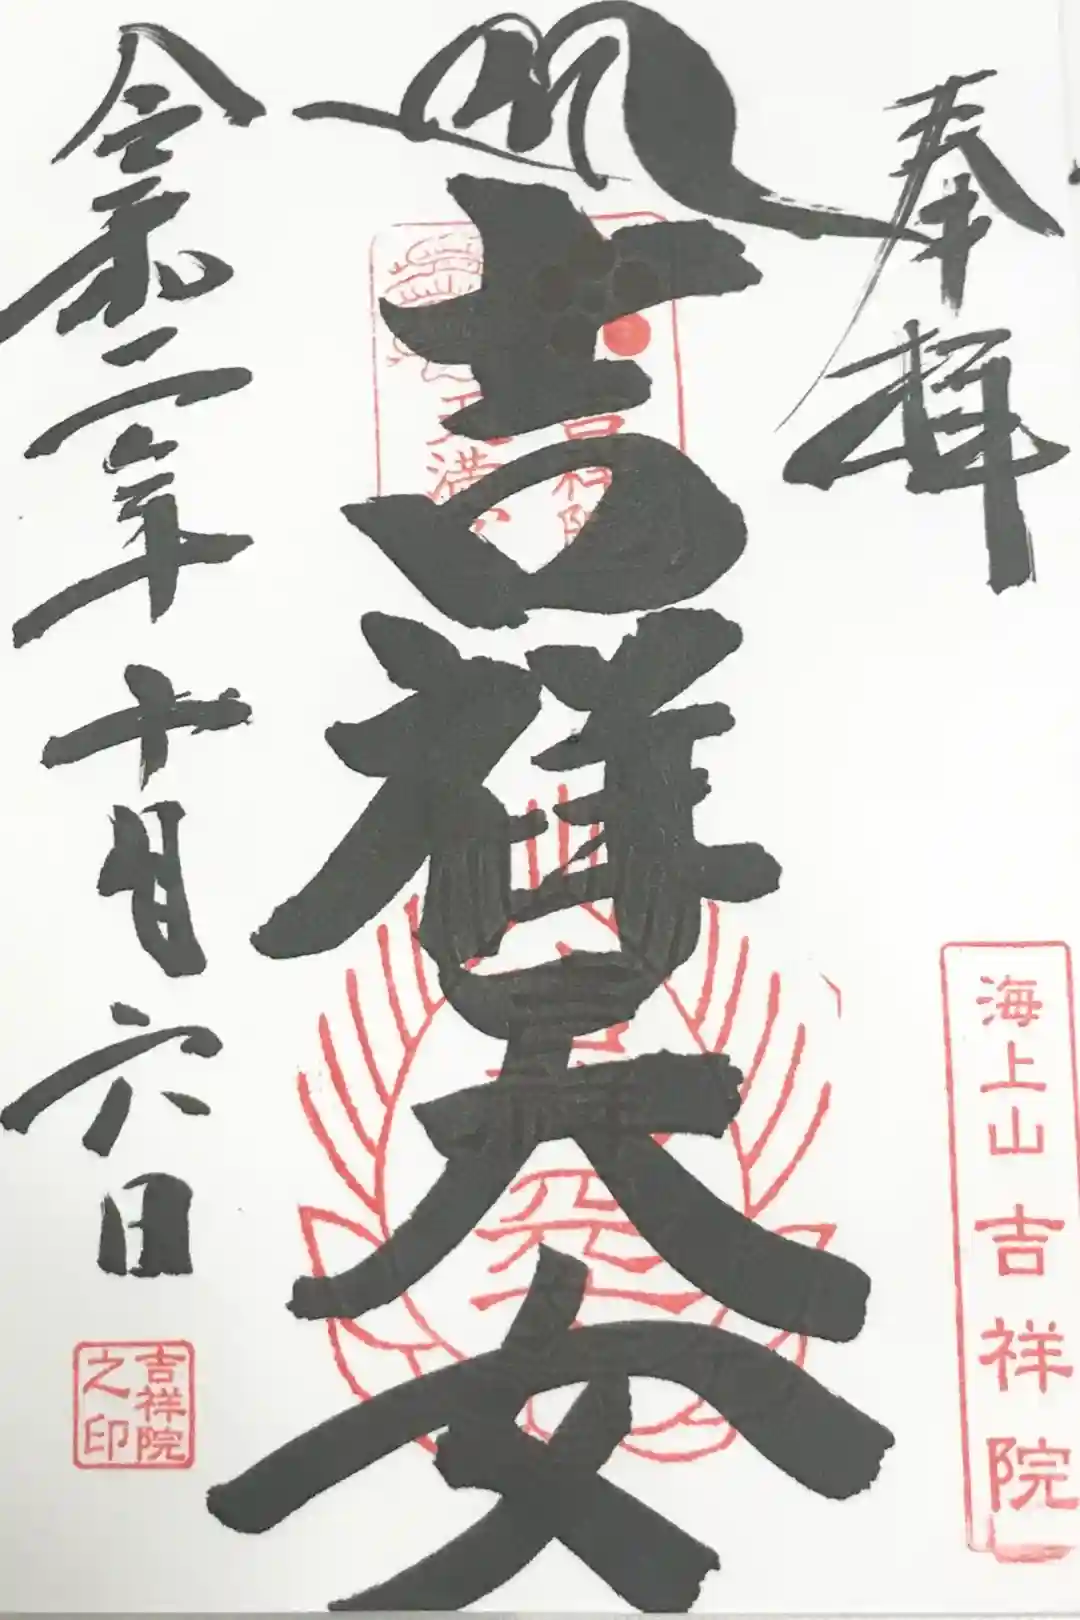 奉拝
海上山吉祥院
吉祥天女
令和二年十月六日
吉祥院之印